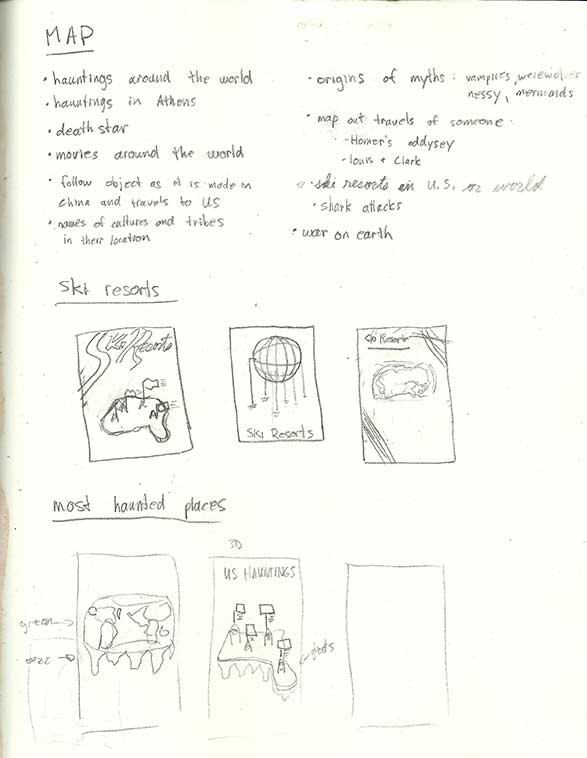 MAP
• hauntings around the world
• hauntings in Athens
• death star
• movies around the world
• follow object as it is made in
china and travels to US
• names of cultures and tribes
in their location
• origins of myths: vampires, werewolves
nessy, mermaids
• map out travels of someone
- Homer's oddysey
- Louis + Clark
• ski resorts in U.S. or world
• shark attacks
• war on earth
Ski resorts
Ski Resorts
Ski Resorts
Ski Resorts
most haunted places
green
ooze
3D
US HAUNTINGS